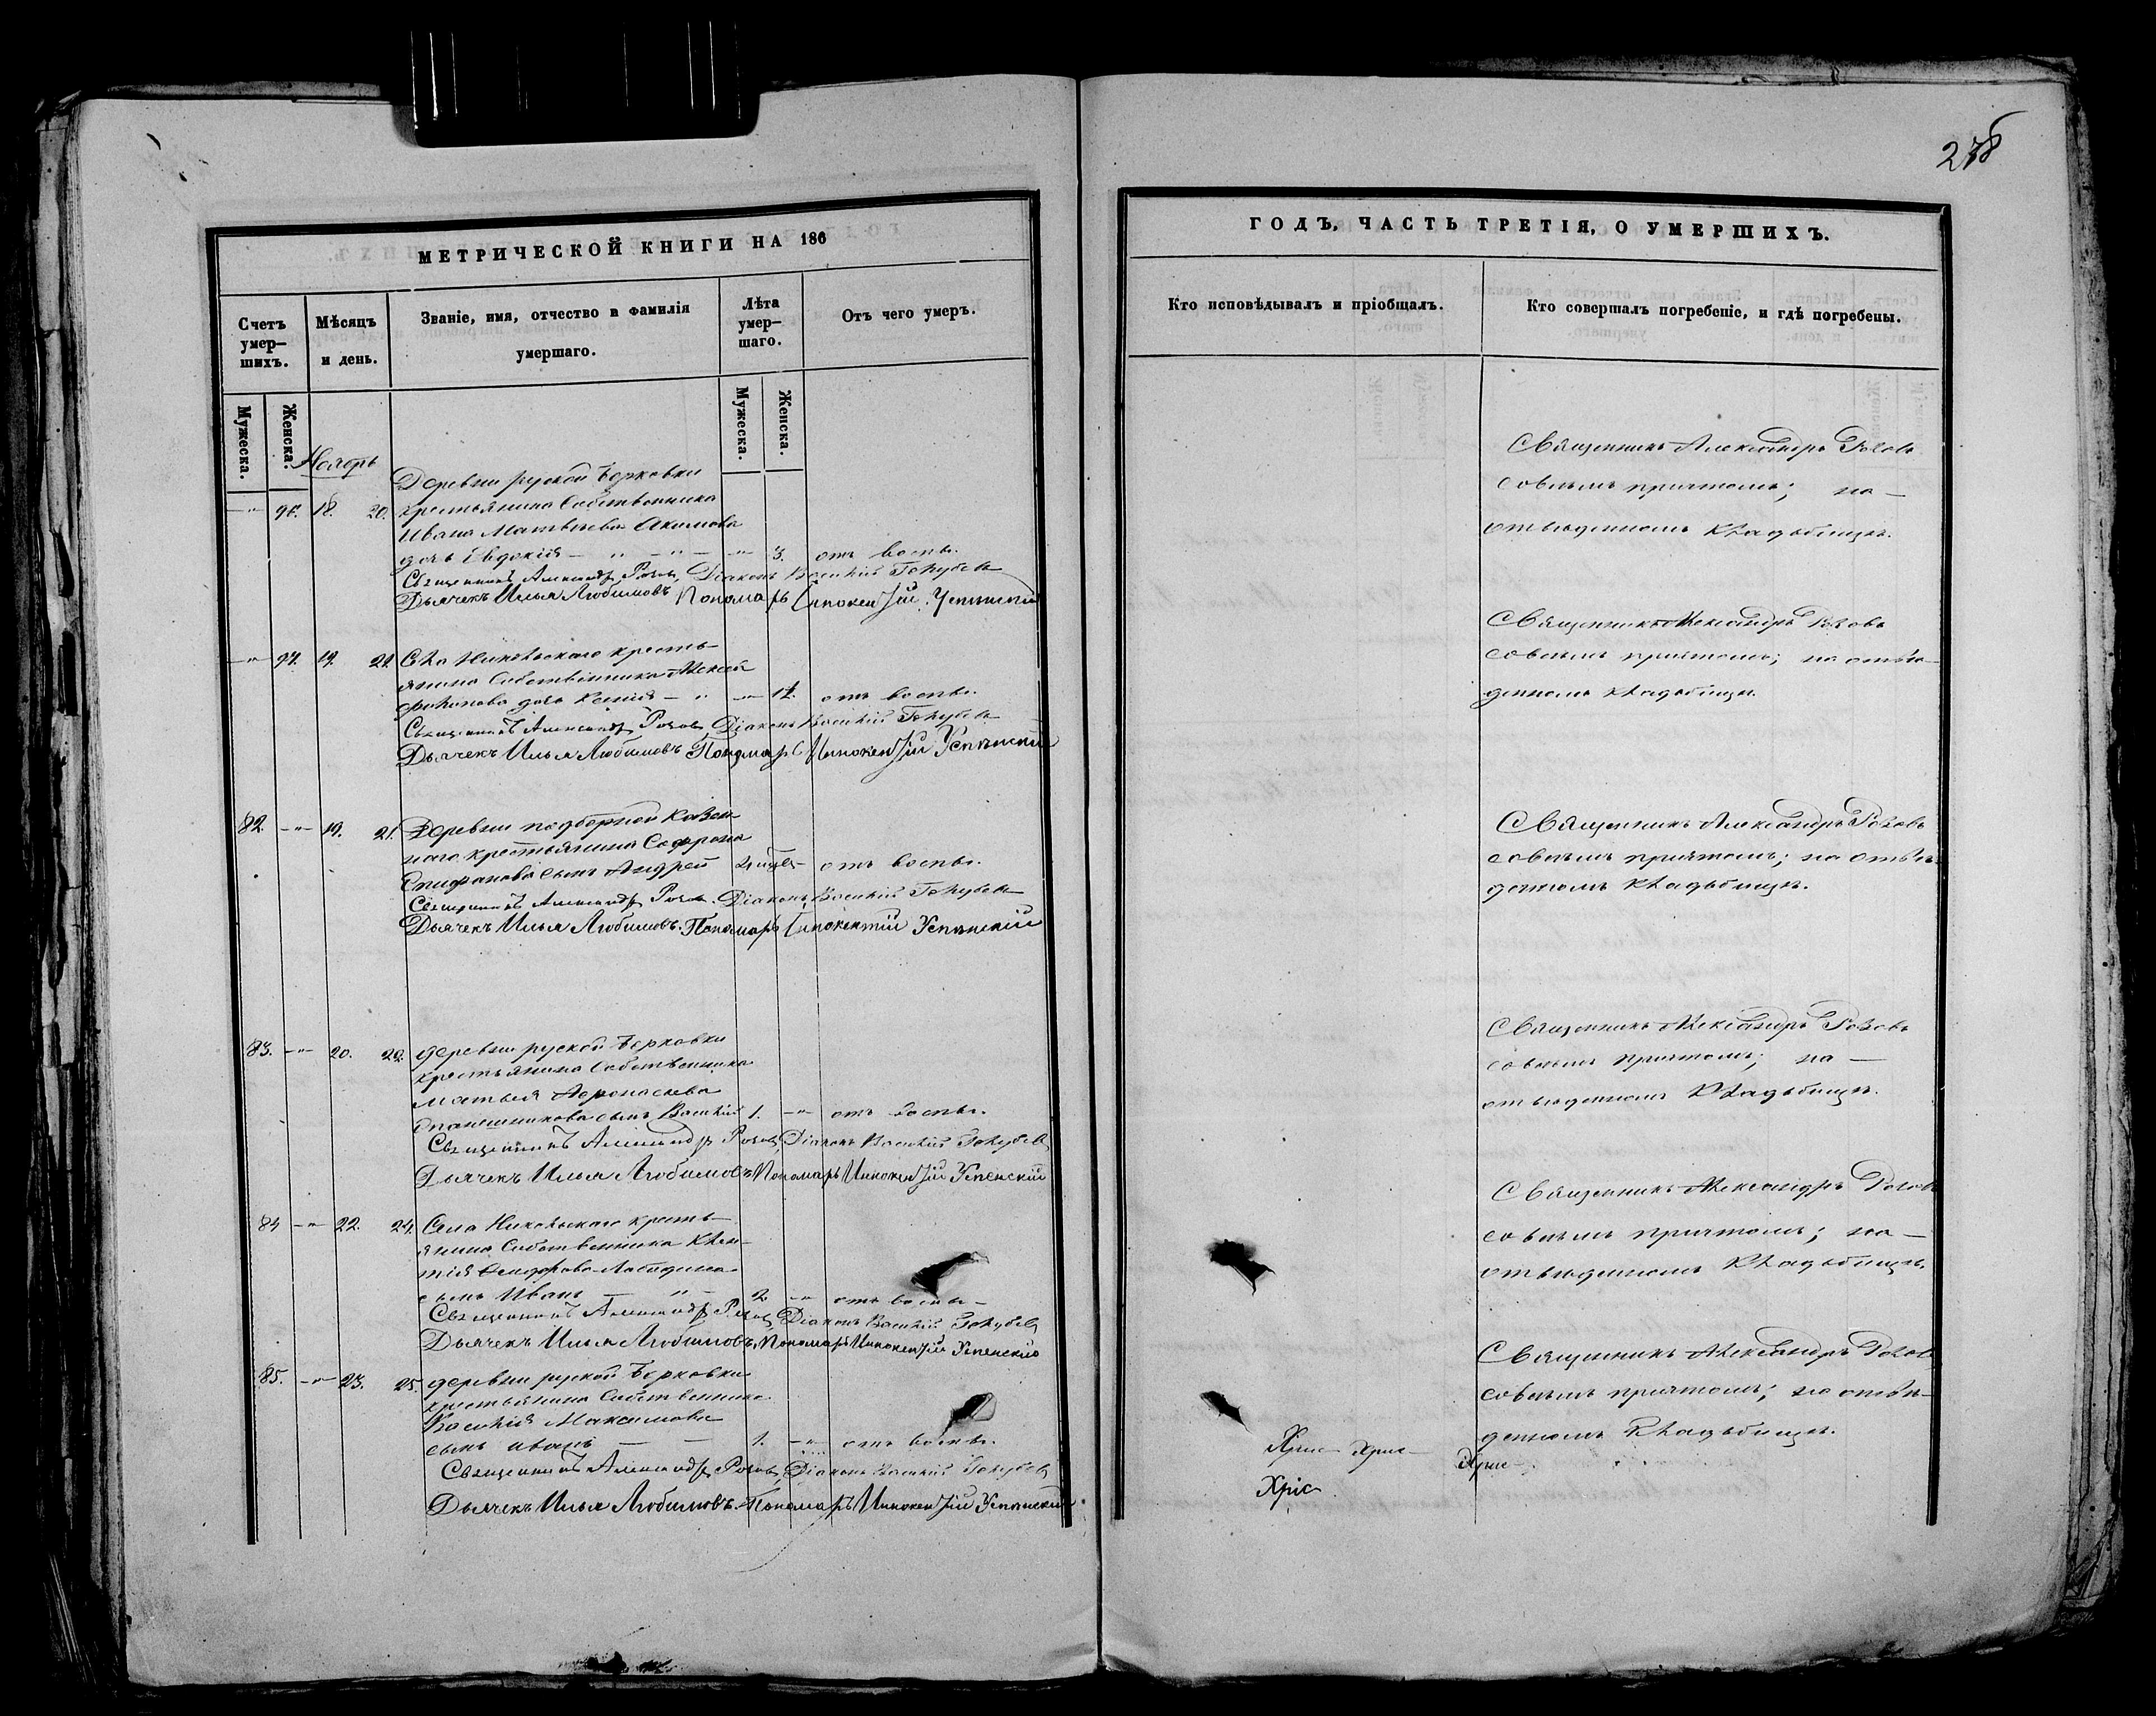 278
МЕТРИЧЕСКОЙ КНИГИ НА 186
Счетъ умер-шихъ.
Мѣсяцъ и день.
Званіе, имя, отчество и фамилія умершаго.
Лѣта умер-шаго.
Отъ чего умеръ.
Мужеска.
Женска.
Мужеска.
Женска.
Ноябрь
Деревни руской Борковки
96. 18. 20. крестьянина Собственника
Ивана Матвеева Акимова
дочь Евдокія 3. отъ воспы.
Священникъ Александръ Розовъ, Діаконъ Василій Голубевъ
Дьячекъ Илья Любимовъ Пономарь Инокентій Успенскій
97. 19. 21. Села Никольскаго кресть-
янина Собственника Алексея
дочь Ксенія отъ воспы.
Священникъ Александръ Розовъ, Діаконъ Василій Голубевъ
Дьячекъ Илья Любимовъ Пономарь Инокентій Успенскій
82. 19. 21. Деревни подборной Казен-
наго крестьянина Софрона
Епифанова сынъ Андрей отъ воспы.
Священникъ Александръ Розовъ. Діаконъ Василій Голубевъ
Дьячекъ Илья Любимовъ. Пономарь Инокентій Успенскій
83. 20. 22. деревни руской Борковки
крестьянина Собственника
сынъ Василій 1. отъ воспы.
Священникъ Александръ Розовъ, Діаконъ Василій Голубевъ
Дьячекъ Илья Любимовъ Пономарь Инокентій Успенскій
84 22. 24. Села Никольскаго кресть-
янина Собственника Клен-
сынъ Иванъ 2 отъ воспы
Священникъ Александръ Розовъ Діаконъ Василій Голубевъ
Дьячекъ Илья Любимовъ, Пономарь Инокентій Успенскій
85. 23. 25. деревни руской Борковки
крестьянина Собственника
Василія Максимова
сынъ иванъ 1. отъ воспы.
Священникъ Александръ Розовъ, Діаконъ Василій Голубевъ
Дьячекъ Илья Любимовъ. Пономарь Инокентій Успенскій
ГОДЪ, ЧАСТЬ ТРЕТІЯ, О УМЕРШИХЪ.
Кто исповѣдывалъ и пріобщалъ.
Кто совершалъ погребеніе, и гдѣ погребены.
Священникъ Александръ Розовъ
совсемъ причтомъ; на
отведенномъ кладбищѣ.
Священникъ Александръ Розовъ
совсемъ причтомъ; на отве-
денномъ кладбищѣ.
Священникъ Александръ Розовъ
совсемъ причтомъ; на отве-
денномъ кладбищѣ.
Священникъ Александръ Розовъ
совсемъ причтомъ; на
отведенномъ кладбищѣ.
Священникъ Александръ Розовъ
совсемъ причтомъ; на
отведенномъ кладбищѣ.
Священникъ Александръ Розовъ
совсемъ причтомъ; на отве-
денномъ кладбищѣ.
Хрис Хрис Хрис
Хріс